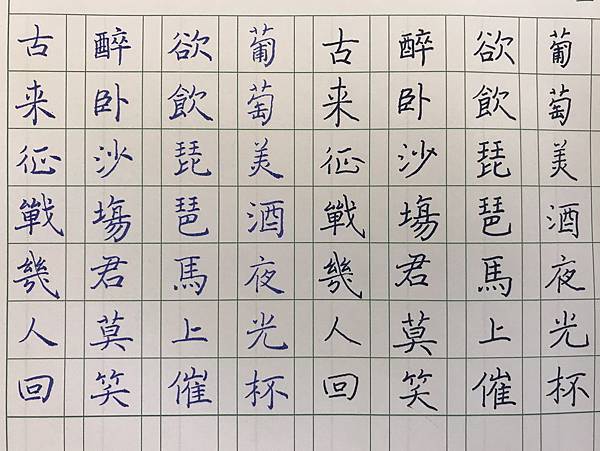 葡萄美酒夜光杯
欲飲琵琶馬上催
醉卧沙場君莫笑
古来征戰幾人回
葡萄美酒夜光杯
欲飲琵琶馬上催
醉卧沙塲君莫笑
古来征戰幾人回